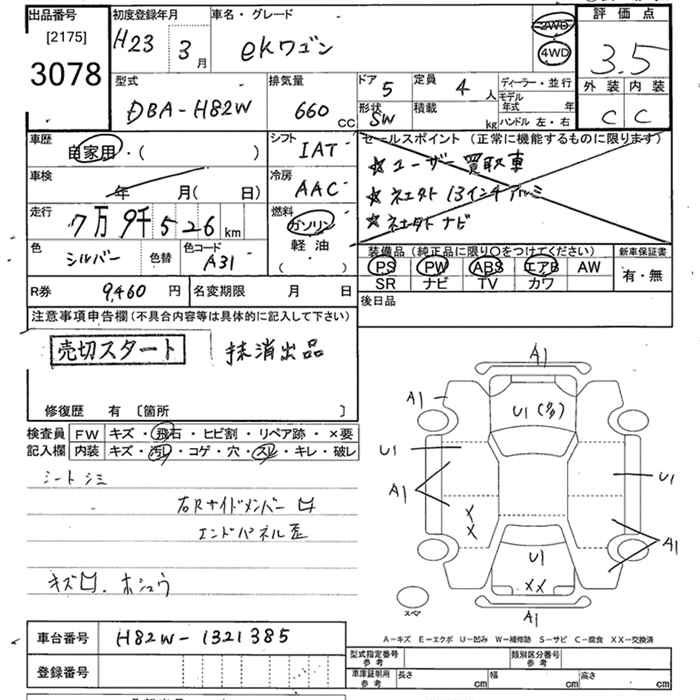 出品番号 初度登録年月 車名・グレード 評価点
[2175]
3078 H23 3月 ekワゴン 2WD 4WD 3.5
型式 排気量 ドア 5 定員 4人 ディーラー・並行 外装 内装
DBA-H82W 660cc 形状 SW 積載 kg モデル年式 年 ハンドル 左・右 C C
車歴 自家用・( ) シフト IAT セールスポイント(正常に機能するものに限ります)
☆ユーザー買取車
車検 年 月( 日) 冷房 AAC ☆ネエタト 13インチアルミ
走行 7万9千526km 燃料 ガソリン ☆ネエタト ナビ
色 シルバー 色替 色コード A31 軽油 ( )
装備品(純正品に限り○をつけてください) 新車保証書
PS PW ABS エアB AW 有・無
SR ナビ TV カワ
R券 9,460円 名変期限 月 日 後日品
注意事項申告欄(不具合内容等は具体的に記入して下さい)
売切スタート 抹消出品
修復歴 有 〔箇所 〕
検査員 FW キズ・飛石・ヒビ割・リペア跡・×要
記入欄 内装 キズ・汚レ・コゲ・穴・スレ・キレ・破レ
シートシミ
右Rサイドメンバー凹
エンドパネル歪
キズ凹.ホシュウ
A1
A1 U1(多)
U1 U1
A1 X X A1
U1
XX
スペア A1
A-キズ E-エクボ U-凹み W-補修跡 S-サビ C-腐食 XX-交換済
車台番号 H82W-1321385
型式指定番号 参考 類別区分番号 参考
登録番号 車庫証明用 参考 長さ cm 幅 cm 高さ cm